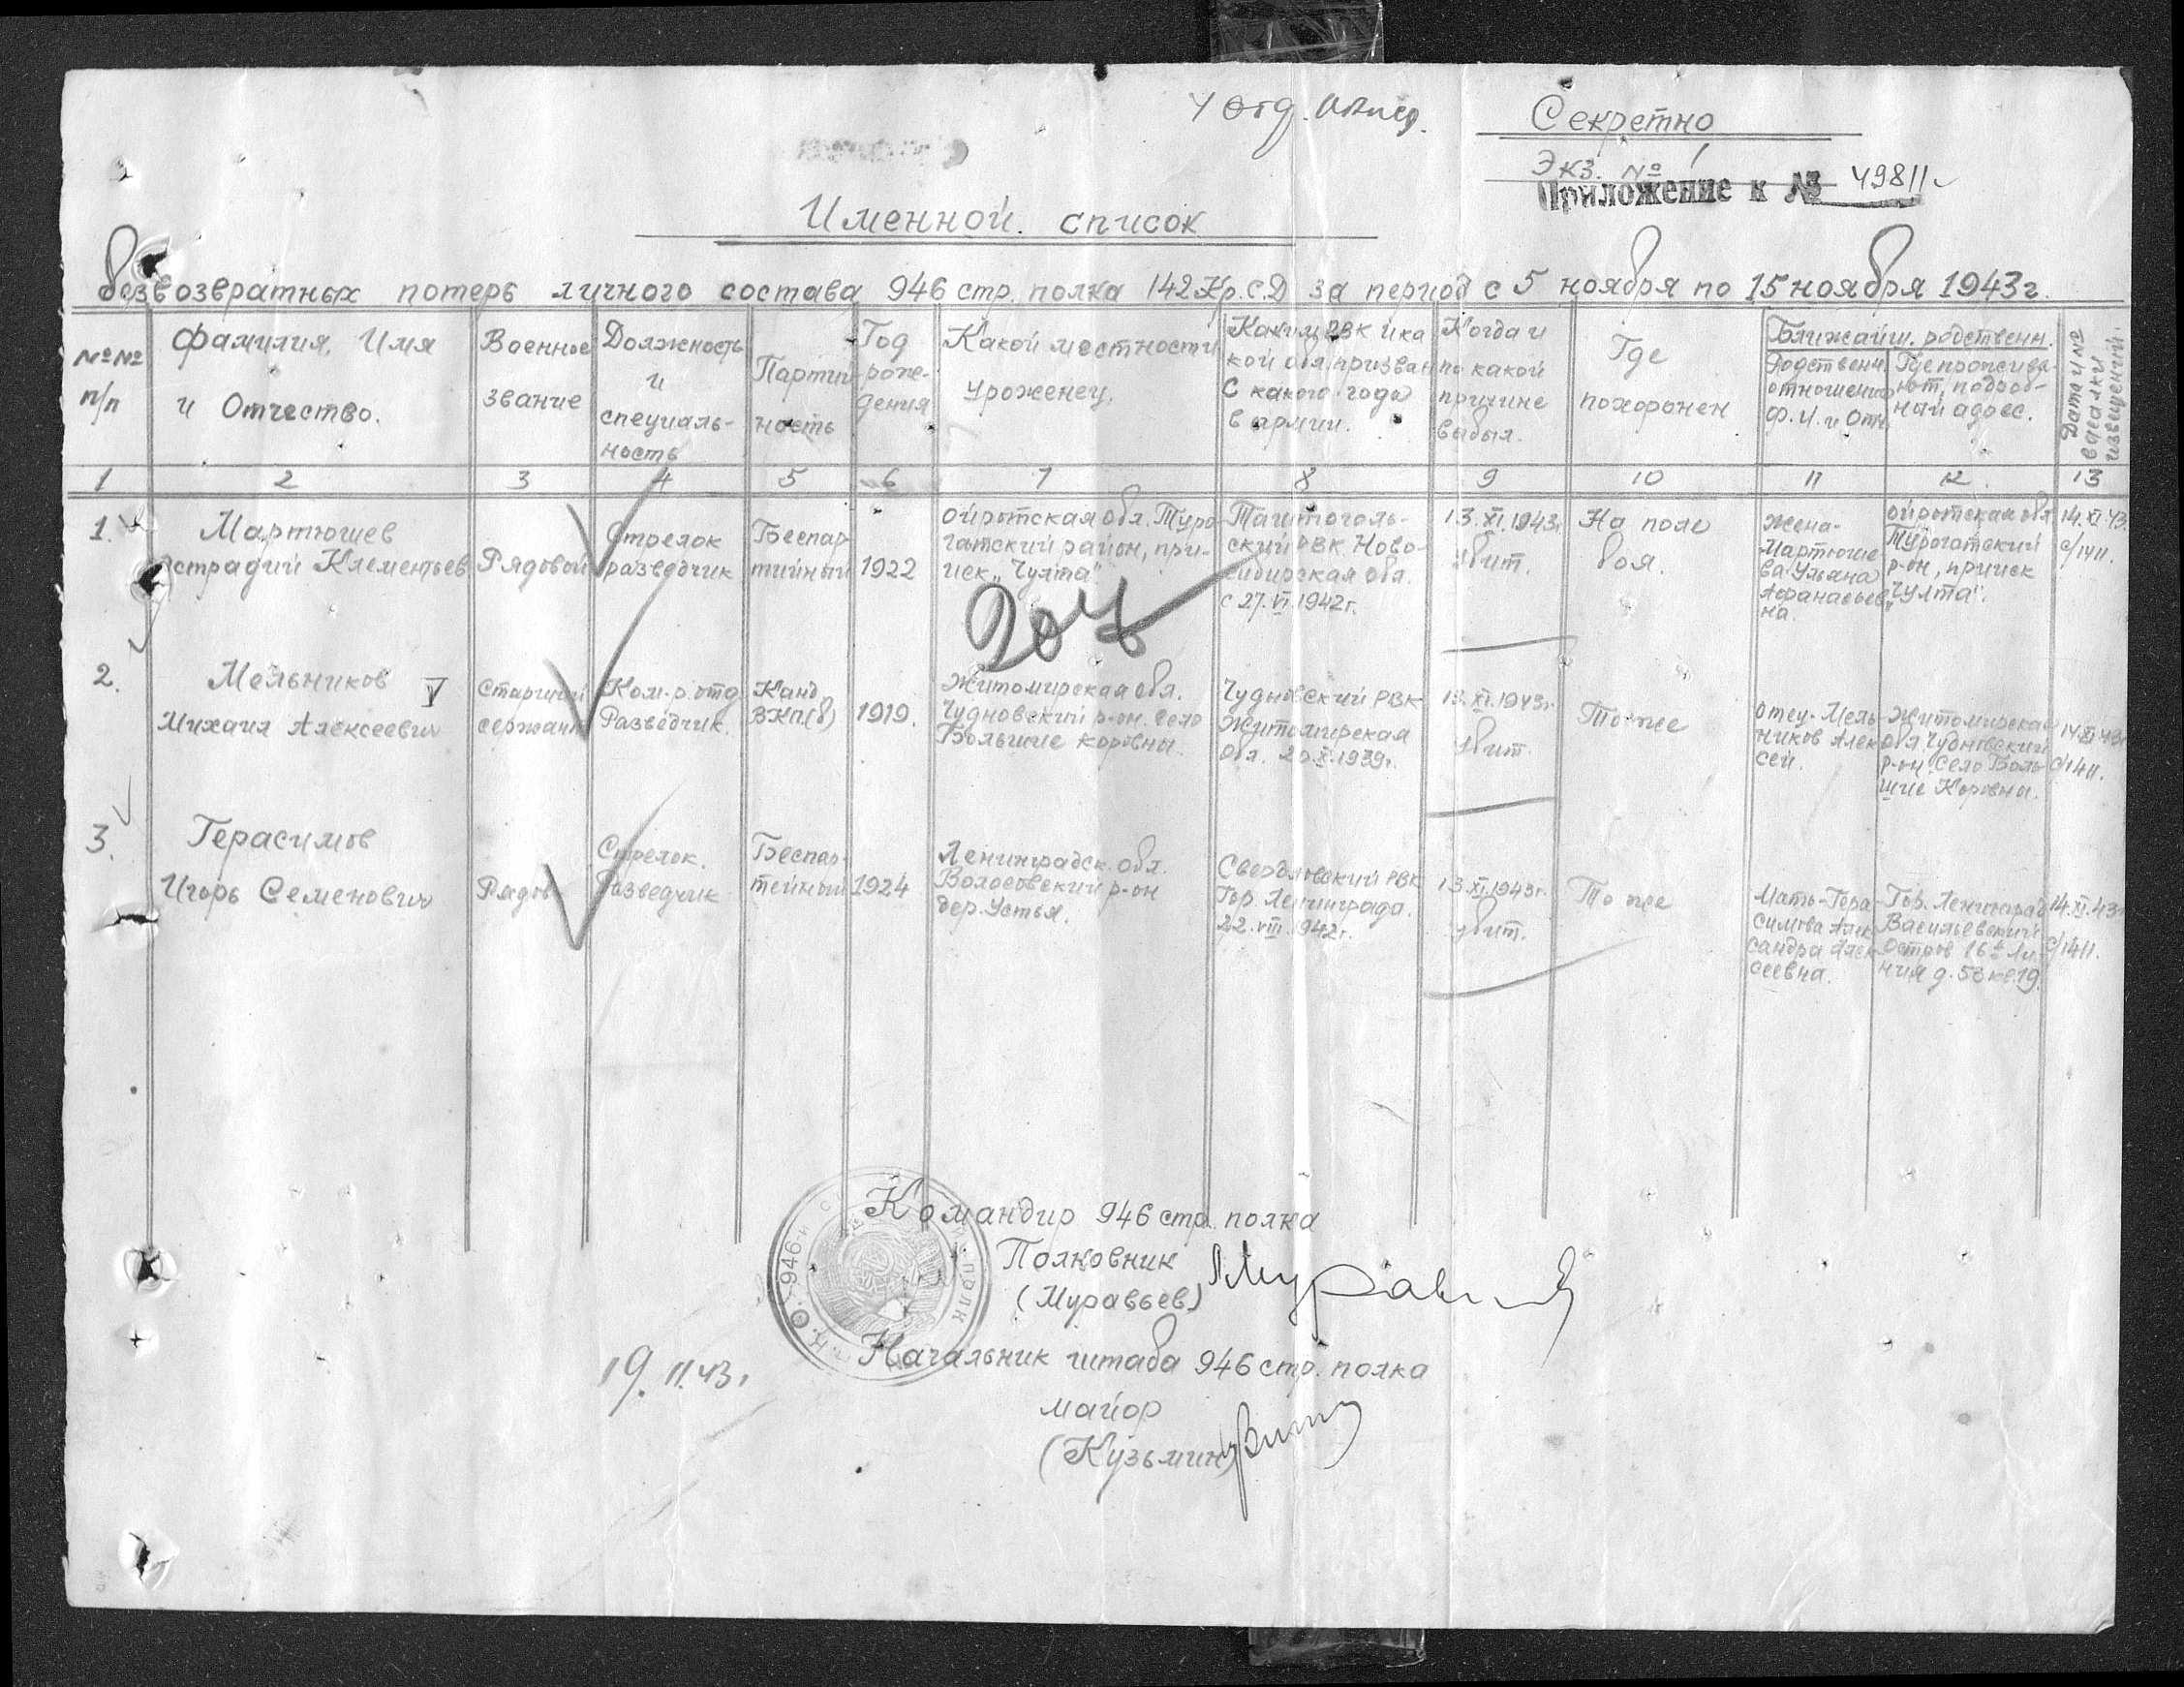 Секретно
Экз. №
Приложение к № 49811
Именной список
безвозвратных потерь личного состава 946 стр. полка 142 Кр.С.Д за период с 5 ноября по 15 ноября 1943г.
№№ п/п
Фамилия, Имя
и Отчество.
Военное
звание
Должность
и
специаль-
ность
Партий-
ность
Год
рож-
дения
Какой местности
уроженец.
Каким РВК и ка
кой обл. призван
С какого года
в армии.
Когда и
по какой
причине
выбыл.
Где
похоронен
Ближайш. родственн.
Родственн.
отношение
Ф.И. и Отч.
Где прожива-
ют, подроб-
ный адрес.
Дата и №
высылки
извещений.
1 2 3 4 5 6 7 8 9 10 11 12 13
1.
Мартюшев
Клементьев
Рядовой
Стрелок
разведчик
Беспар-
тийный
1922
Ойротская обл. Туро-
гатский район, при-
иск „Чулта"
ский РВК Ново-
сибирская обл.
с 27.VI.1942г.
13.XI.1943г.
убит.
На поле
боя.
жена-
Мартюше-
ва Ульяна
Афанасьев-
на.
Ойротская обл
Турогатский
р-он, прииск
„Чулта".
14.XI.43.
с/1411.
204
2.
Мельников
Михаил Алексеевич
Старший
сержант
Ком-р. отд
Разведчик.
Канд
ВКП(б)
1919.
Житомирская обл.
Чудновский р-он. село
Большие коровны.
Чудновский РВК
Житомирская
обл. 20.X.1939г.
13.XI.1943г.
убит.
То-же
отец-Мель-
ников Алек
сей.
Житомирская
обл. Чудновский
р-он село Боль-
шие Коровны.
14.XI.43г
с/1411.
3.
Герасимов
Игорь Семенович
Рядов
Стрелок.
Разведчик
Беспар-
тейный
1924
Ленинградск. обл.
Волосовский р-он
дер. Устья.
Свердловский РВК
Гор. Ленинграда.
22.VIII.1942г.
13.XI.1943г.
убит.
То же
Мать-Гера-
симова Алек
сандра Алек
сеевна.
Гор. Ленинград
Васильевский
Остров 16ª Ли-
ния д. 53 кв.19.
14.XI.43г
с/1411.
Командир 946 стр. полка
Полковник
(Муравьев)
Начальник штаба 946 стр. полка
майор
(Кузьмин)
19.11.43.